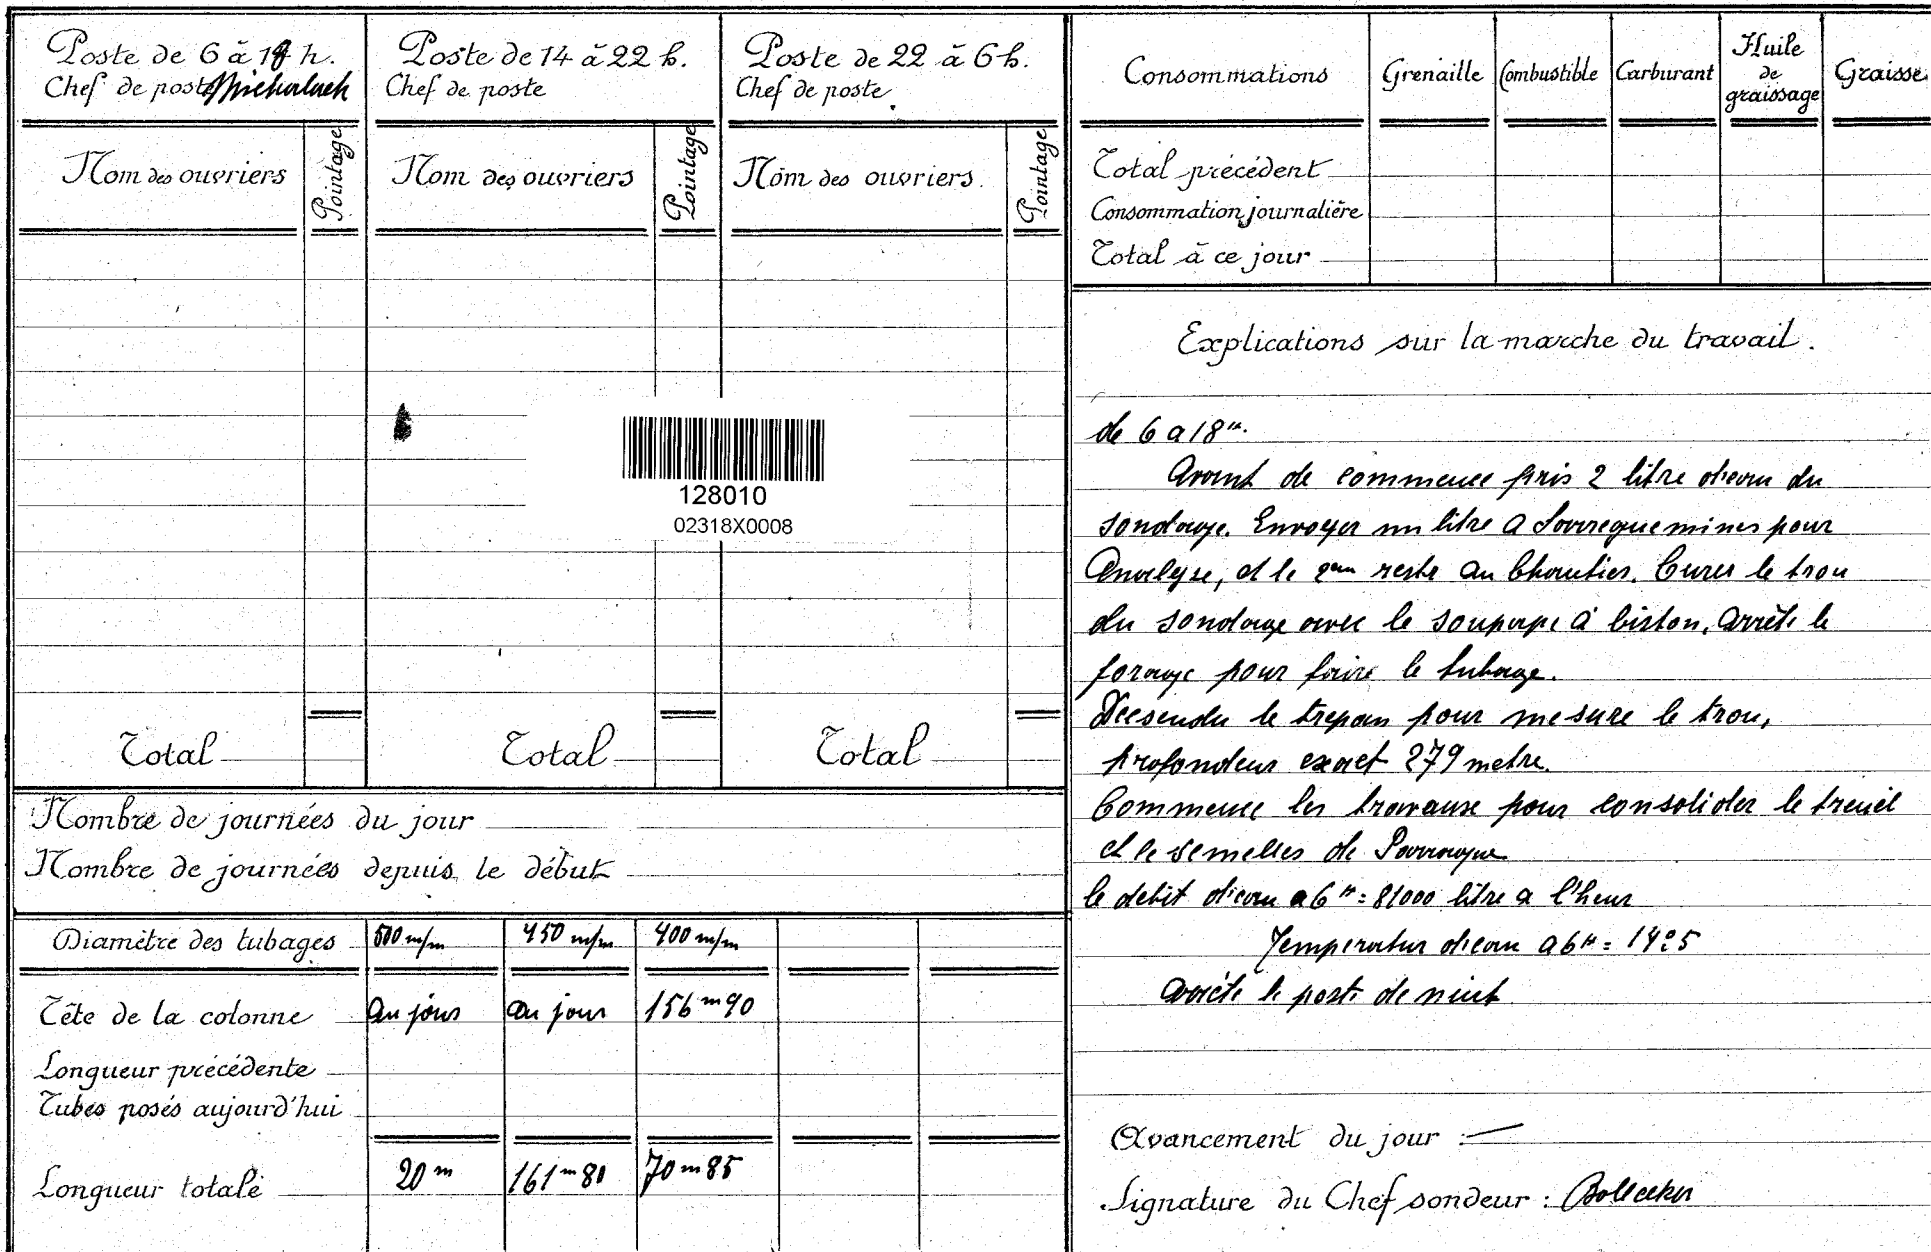 Poste de 6 à 18 h.
Chef de poste
Poste de 14 à 22 h.
Chef de poste
Poste de 22 à 6 h.
Chef de poste
Nom des ouvriers
Pointage
Nom des ouvriers
Pointage
Nom des ouvriers
Pointage
128010
02318X0008
Total
Total
Total
Nombre de journées du jour
Nombre de journées depuis le début
Diamètre des tubages 500 m/m 450 m/m 400 m/m
Tête de la colonne au jour au jour 156 m 90
Longueur précédente
Tubes posés aujourd'hui
Longueur totale 20 m 161 m 80 70 m 85
Consommations Grenaille Combustible Carburant Huile de graissage Graisse
Total précédent
Consommation journalière
Total à ce jour
Explications sur la marche du travail.
de 6 a 18 H.
Avant de commence pris 2 litre d'eau du
sondage. Envoyer un litre a Sarreguemines pour
Analyse, et le 2em reste au Chantier. Curer le trou
du sondage avec le soupape à biston, arrête le
forage pour faire le tubage.
Descendu le trepan pour mesure le trou,
profondeur exact 279 metre.
Commence les travause pour consolider le treuil
et le semelles de
le debit d'eau a 6 H = 81000 litre a l'heur
Temperatur d'eau a 6 H = 14°5
arrête le poste de niut
Avancement du jour : —
Signature du Chef sondeur :